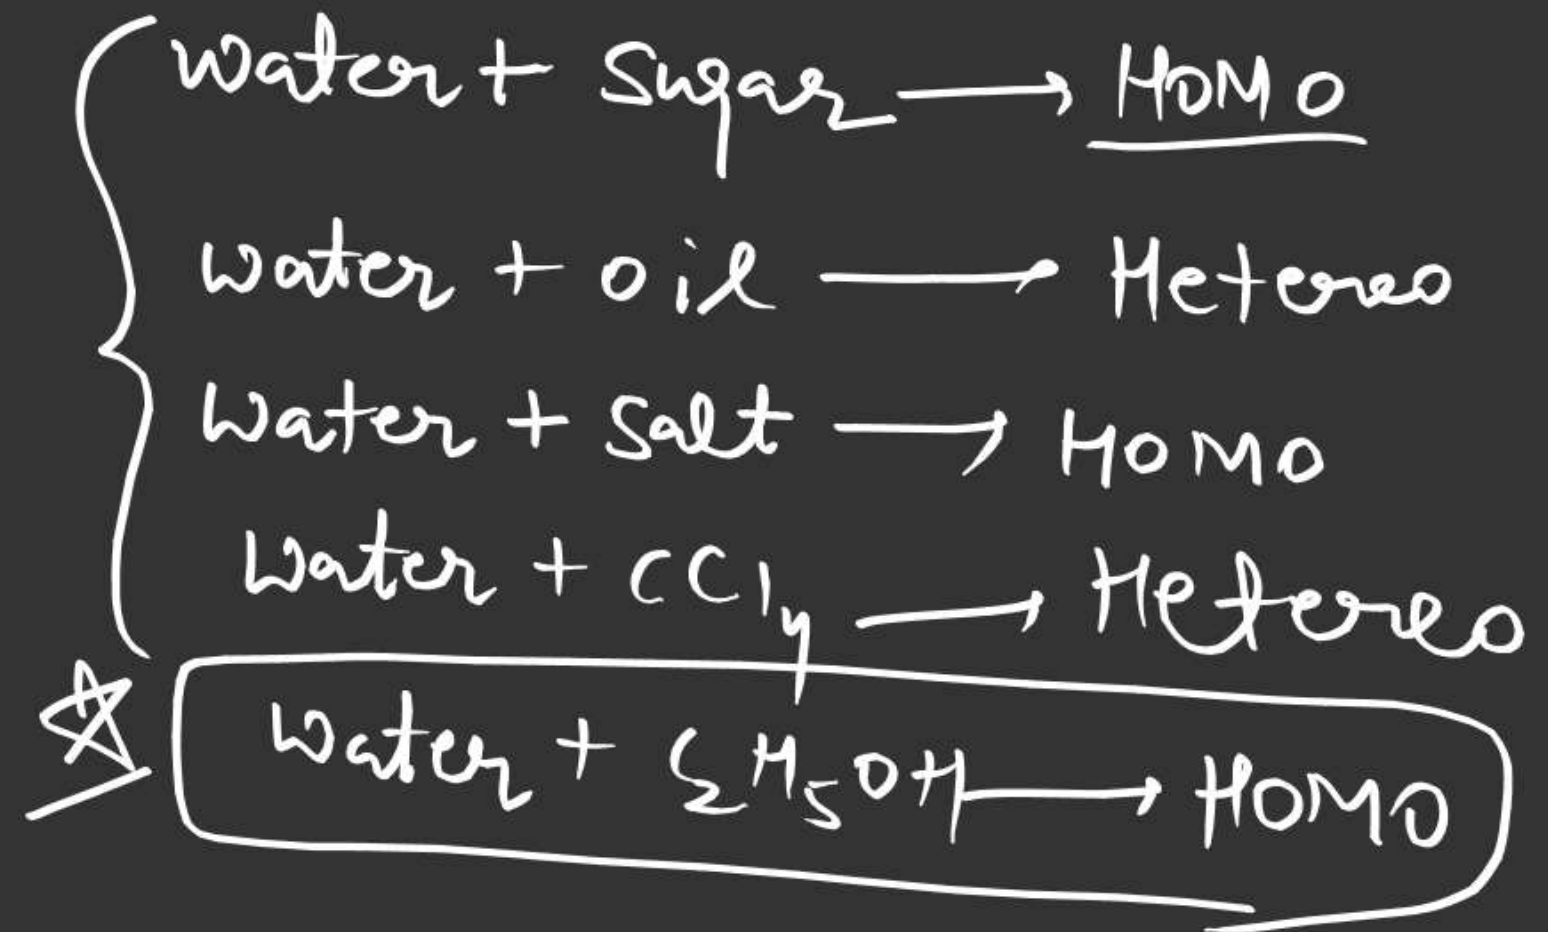 Water + Sugar → HOMO
Water + oil → Hetero
Water + Salt → HOMO
Water + CCl4 → Hetero
Water + C2H5OH → HOMO